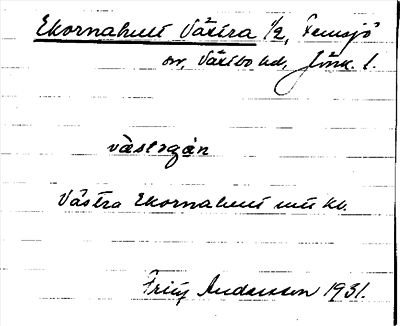 Ekornahult Västra 1/2, Femsjö
sn, Västbo hd, Jönk. l.
västrgån
Västra Ekornahult mtl kv.
Fritz Andersson 1931.